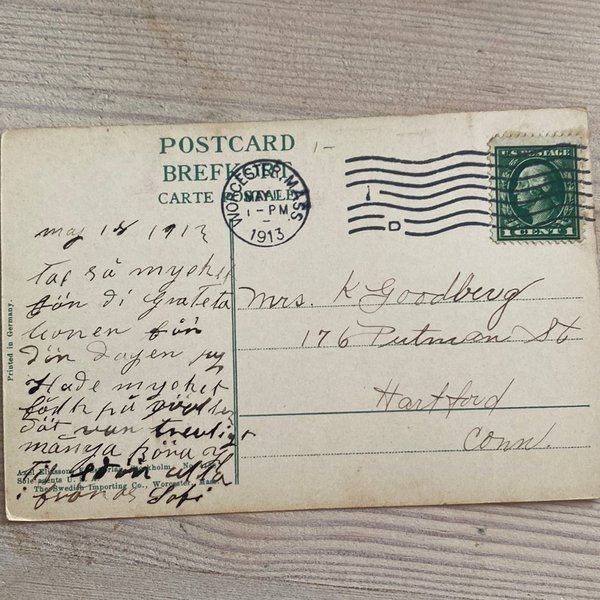 POSTCARD
BREFKORT
CARTE POSTALE
1-
WORCESTER, MASS.
MAY
1-PM
1913
U.S. POSTAGE
1 CENT 1
D
maj 18 1913
Tag så mycket
för di Grateta
tionen för
dön dagen jag
Hade mycket
på
dät var trevligt
många
i från os Sofi
Mrs. K Goodberg
176 Putman St
Hartford
Conn.
Printed in Germany.
Axel Eliassons Stockholm. No.
Sole agents U.S.
The Swedish Importing Co., Worcester, Mass.